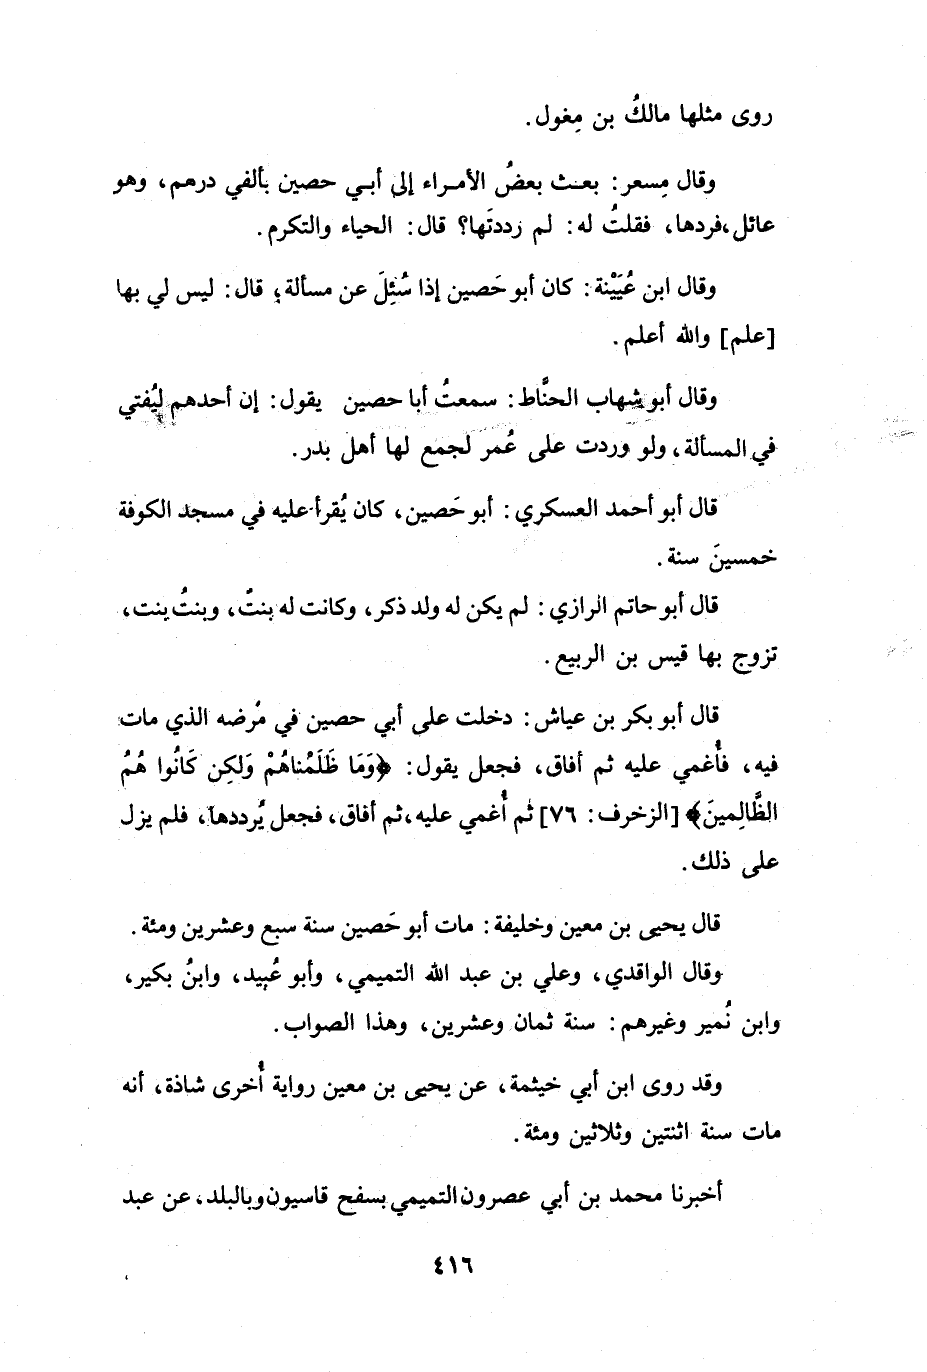 روى مثلها مالكُ بن مِغول.
وقال مِسعر: بعث بعضُ الأمراء إلى أبي حصين بألفي درهم، وهو
عائل، فردها، فقلتُ له: لم رددتَها؟ قال: الحياء والتكرم.
وقال ابن عُيَيْنة: كان أبو حَصين إذا سُئِلَ عن مسألة؛ قال: ليس لي بها
[علم] والله أعلم.
وقال أبو شهاب الحنَّاط: سمعتُ أبا حصين يقول: إن أحدهم ليُفتي
في المسألة، ولو وردت على عُمر لجمع لها أهل بدر.
قال أبو أحمد العسكري: أبو حَصين، كان يُقرأ عليه في مسجد الكوفة
خمسينَ سنة.
قال أبو حاتم الرازي: لم يكن له ولد ذكر، وكانت له بنتٌ، وبنتُ بنت،
تزوج بها قيس بن الربيع.
قال أبو بكر بن عياش: دخلت على أبي حصين في مَرضه الذي مات
فيه، فأُغمي عليه ثم أفاق، فجعل يقول: ﴿وَمَا ظَلَمْناهُمْ وَلكِن كَانُوا هُمُ
الظَّالِمينَ﴾ [الزخرف: ٧٦] ثم أُغمي عليه، ثم أفاق، فجعل يُرددها، فلم يزل
على ذلك.
قال يحيى بن معين وخليفة: مات أبو حَصين سنة سبع وعشرين ومئة.
وقال الواقدي، وعلي بن عبد الله التميمي، وأبو عُبيد، وابنُ بكير،
وابن نُمير وغيرهم: سنة ثمان وعشرين، وهذا الصواب.
وقد روى ابن أبي خيثمة، عن يحيى بن معين رواية أُخرى شاذة، أنه
مات سنة اثنتين وثلاثين ومئة.
أخبرنا محمد بن أبي عصرون التميمي بسفح قاسيون وبالبلد، عن عبد
٤١٦